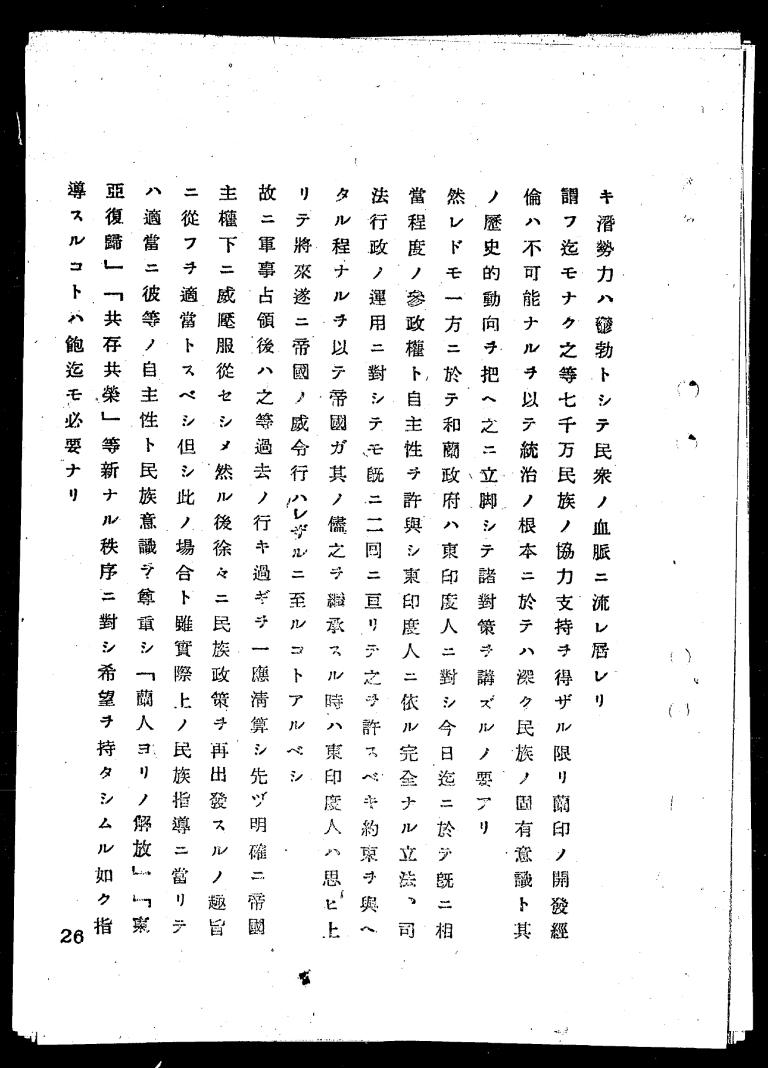 キ潛勢力ハ鬱勃トシテ民衆ノ血脈ニ流レ居レリ
謂フ迄モナク之等七千万民族ノ協力支持ヲ得ザル限リ蘭印ノ開發經
倫ハ不可能ナルヲ以テ統治ノ根本ニ於テハ深ク民族ノ固有意識ト其
ノ歷史的動向ヲ把ヘ之ニ立脚シテ諸對策ヲ講ズルノ要アリ
然レドモ一方ニ於テ和蘭政府ハ東印度人ニ對シ今日迄ニ於テ既ニ相
當程度ノ參政權ト自主性ヲ許與シ東印度人ニ依ル完全ナル立法、司
法行政ノ運用ニ對シテモ既ニ二回ニ亘リテ之ヲ許スベキ約束ヲ與ヘ
タル程ナルヲ以テ帝國ガ其ノ儘之ヲ繼承スル時ハ東印度人ハ思ヒ上
リテ將來遂ニ帝國ノ威令行ハレザルニ至ルコトアルベシ
故ニ軍事占領後ハ之等過去ノ行キ過ギヲ一應淸算シ先ヅ明確ニ帝國
主權下ニ威壓服從セシメ然ル後徐々ニ民族政策ヲ再出發スルノ趣旨
ニ從フヲ適當トスベシ但シ此ノ場合ト雖實際上ノ民族指導ニ當リテ
ハ適當ニ彼等ノ自主性ト民族意識ヲ尊重シ「蘭人ヨリノ解放」「東
亞復歸」「共存共榮」等新ナル秩序ニ對シ希望ヲ持タシムル如ク指
導スルコトハ飽迄モ必要ナリ
26